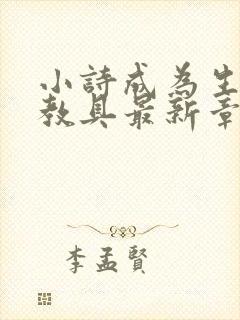 小詩成為生
教具最新章
李孟賢